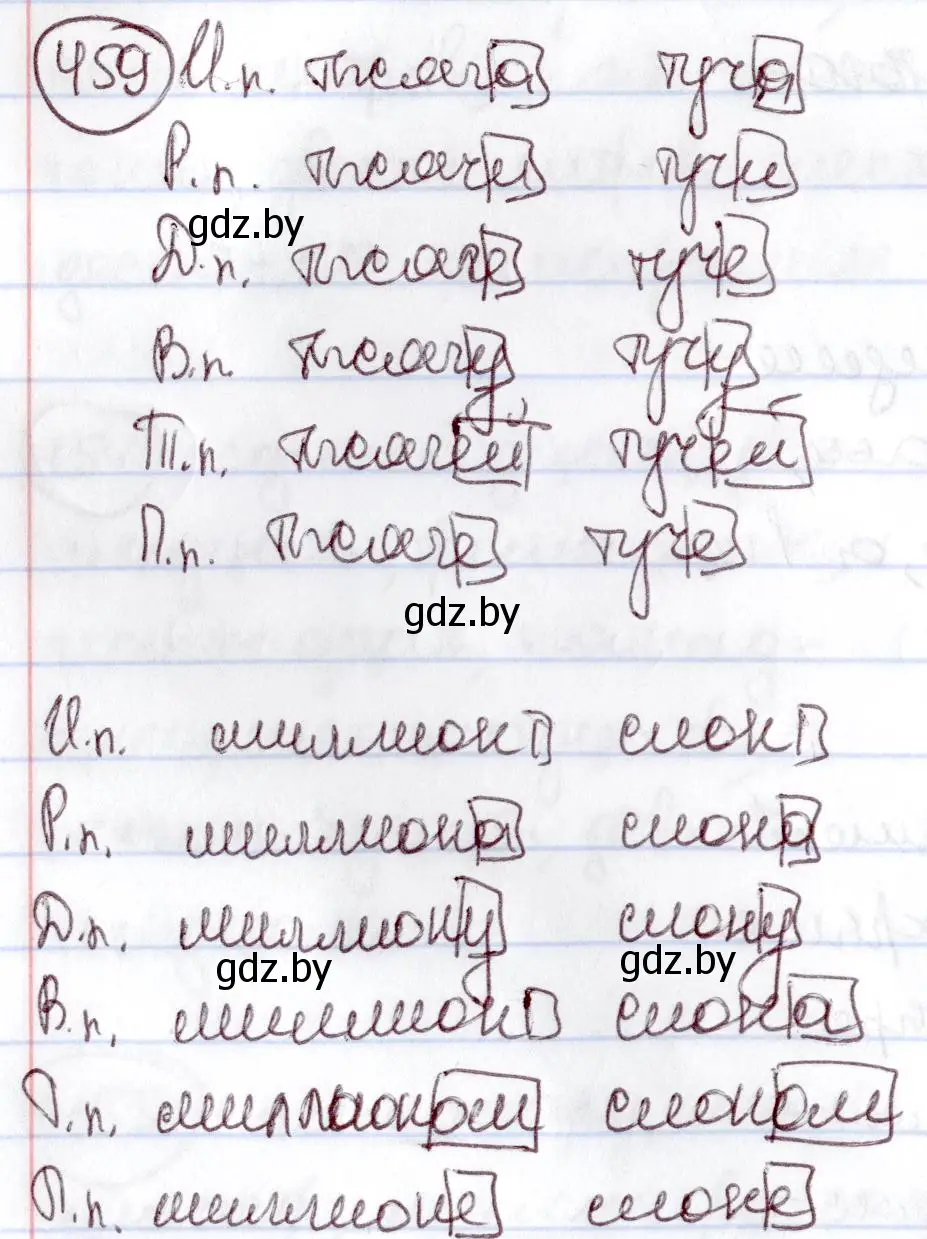 459 И.п. тысяча туча
Р.п. тысячи тучи
gdz.by
Д.п. тысяче туче
В.п. тысячу тучу
Т.п. тысячей тучей
П.п. тысяче туче
gdz.by
И.п. миллион слон
Р.п. миллиона слона
Д.п. миллиону слону
gdz.by gdz.by
В.п. миллион слона
Т.п. миллионом слоном
П.п. миллионе слоне